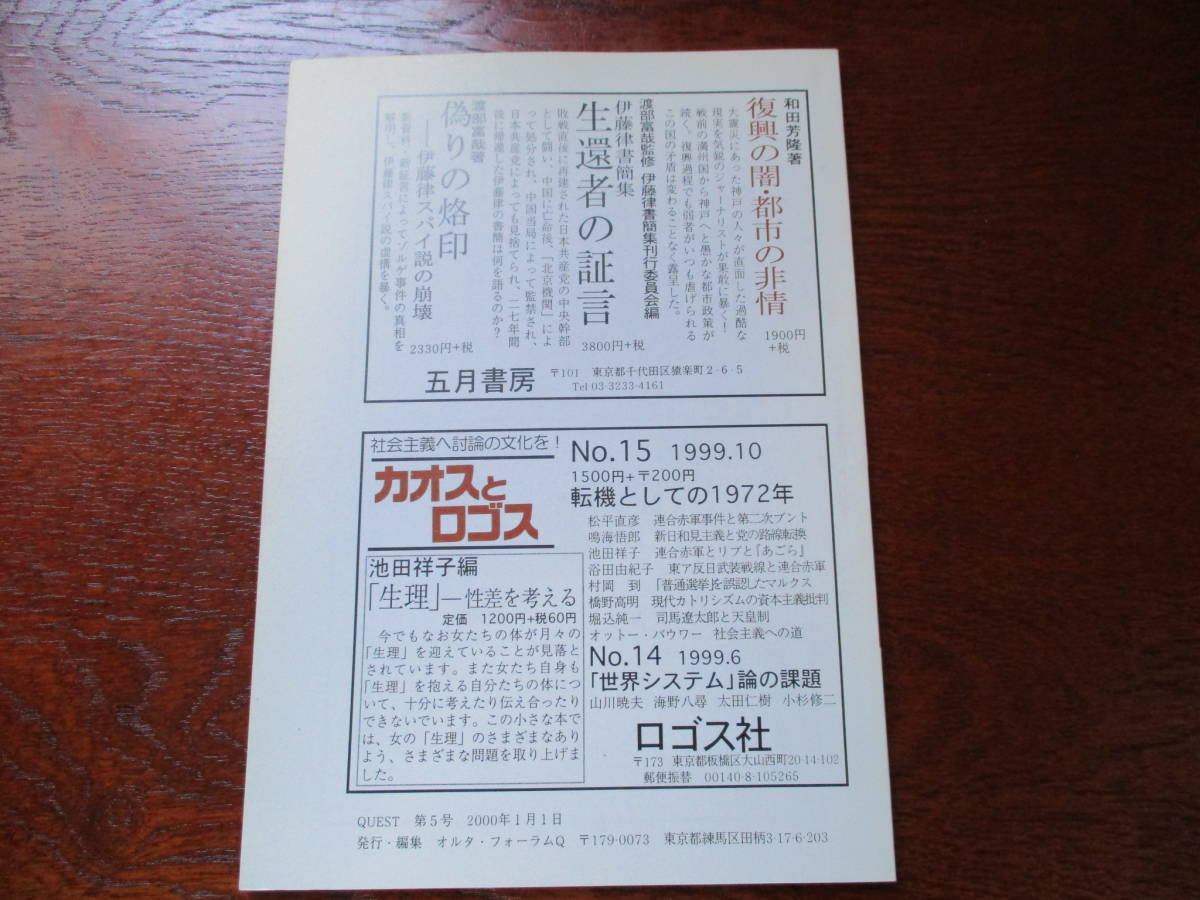 和田芳隆著
復興の闇・都市の非情
大震災にあった神戸の人々が直面した過酷な
現実を気鋭のジャーナリストが果敢に暴く!
戦前の満州国から神戸へと愚かな都市政策が
続く。復興過程でも弱者がいつも虐げられる
この国の矛盾は変わることなく露呈した。
1900円
+税
渡部富哉監修 伊藤律書簡集刊行委員会編
伊藤律書簡集
生還者の証言
敗戦直後に再建された日本共産党の中央幹部
として闘い、中国に亡命後、「北京機関」によ
って処分され、中国当局によって監禁され、
日本共産党によっても見捨てられ、二七年間
後に帰還した伊藤律の書簡は何を語るのか?
3800円+税
渡部富哉著
偽りの烙印
―伊藤律スパイ説の崩壊
新資料、新証言によってゾルゲ事件の真相を
解明し、伊藤律スパイ説の虚構を暴く。
2330円+税
五月書房
〒101 東京都千代田区猿楽町2-6-5
Tel 03-3233-4161
社会主義へ討論の文化を!
カオスと
ロゴス
池田祥子編
「生理」―性差を考える
定価 1200円+税60円
今でもなお女たちの体が月々の
「生理」を迎えていることが見落と
されています。また女たち自身も
「生理」を抱える自分たちの体につ
いて、十分に考えたり伝え合ったり
できないでいます。この小さな本で
は、女の「生理」のさまざまなあり
よう、さまざまな問題を取り上げま
した。
No.15 1999.10
1500円+〒200円
転機としての1972年
松平直彦 連合赤軍事件と第二次ブント
鳴海悟郎 新日和見主義と党の路線転換
池田祥子 連合赤軍とリブと『あごら』
浴田由紀子 東ア反日武装戦線と連合赤軍
村岡 到 「普通選挙」を誤認したマルクス
橋野高明 現代カトリシズムの資本主義批判
堀込純一 司馬遼太郎と天皇制
オットー・バウワー 社会主義への道
No.14 1999.6
「世界システム」論の課題
山川暁夫 海野八尋 太田仁樹 小杉修二
ロゴス社
〒173 東京都板橋区大山西町20-14-102
郵便振替 00140-8-105265
QUEST 第5号 2000年1月1日
発行・編集 オルタ・フォーラムQ 〒179-0073 東京都練馬区田柄3-17-6-203